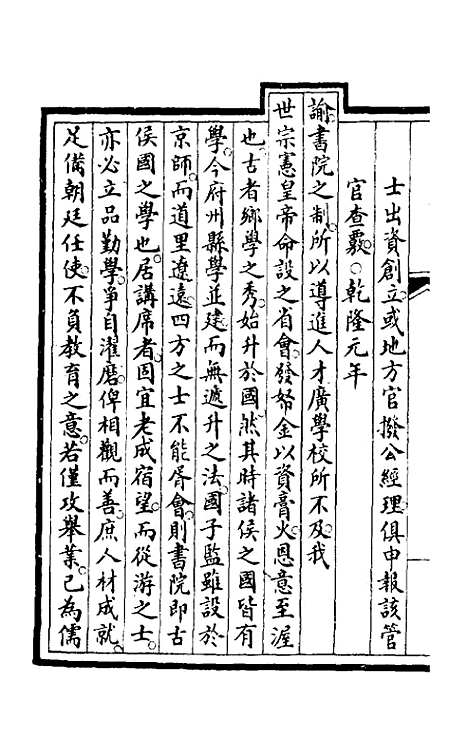 士出資創立或地方官撥公經理俱申報該管
官查覈○乾隆元年
諭書院之制所以導進人才廣學校所不及我
世宗憲皇帝命設之省會發帑金以資膏火恩意至渥
也古者鄉學之秀始升於國然其時諸侯之國皆有
學今府州縣學並建而無遞升之法國子監雖設於
京師而道里遼遠四方之士不能胥會則書院即古
侯國之學也居講席者固宜老成宿望而從游之士
亦必立品勤學爭自濯磨俾相觀而善庶人材成就
足備朝廷任使不負教育之意若僅攻舉業已為儒